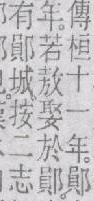 傳桓十一年鄖
年若敖娶於鄖
有鄖城按二志